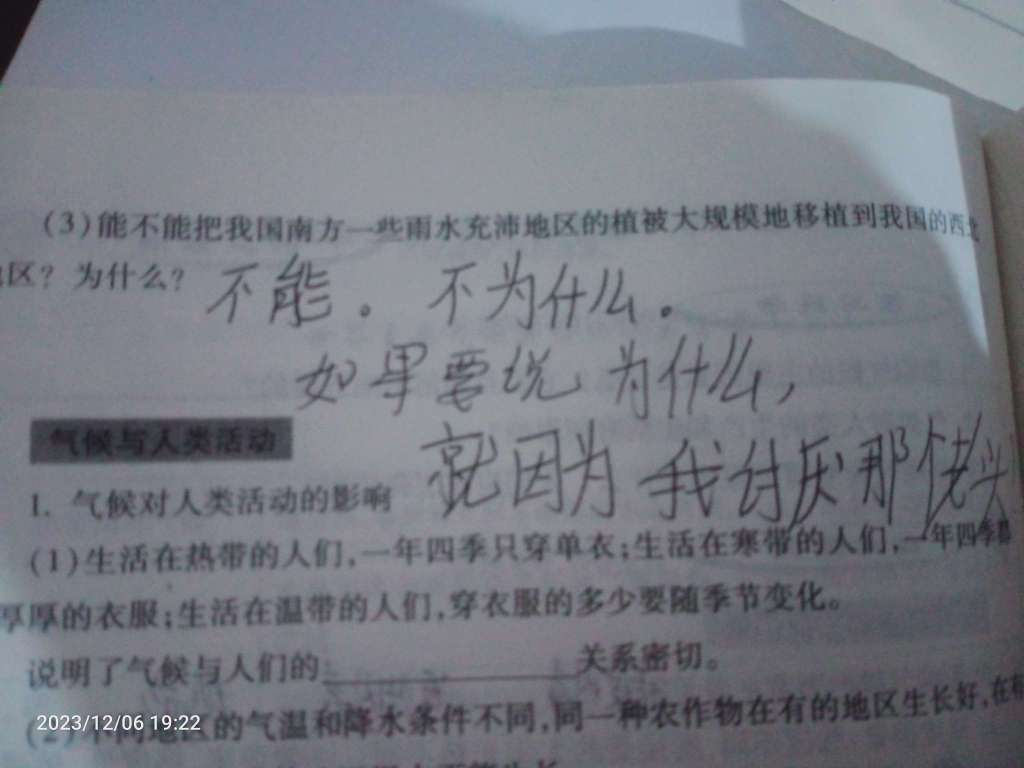 (3)能不能把我国南方一些雨水充沛地区的植被大规模地移植到我国的西北
区？为什么？ 不能。不为什么。
如果要说为什么，
就因为我讨厌那佬头
气候与人类活动
1. 气候对人类活动的影响
(1)生活在热带的人们,一年四季只穿单衣;生活在寒带的人们,一年四季
厚厚的衣服;生活在温带的人们,穿衣服的多少要随季节变化。
说明了气候与人们的 关系密切。
(2)不同地区的气温和降水条件不同,同一种农作物在有的地区生长好,在
2023/12/06 19:22